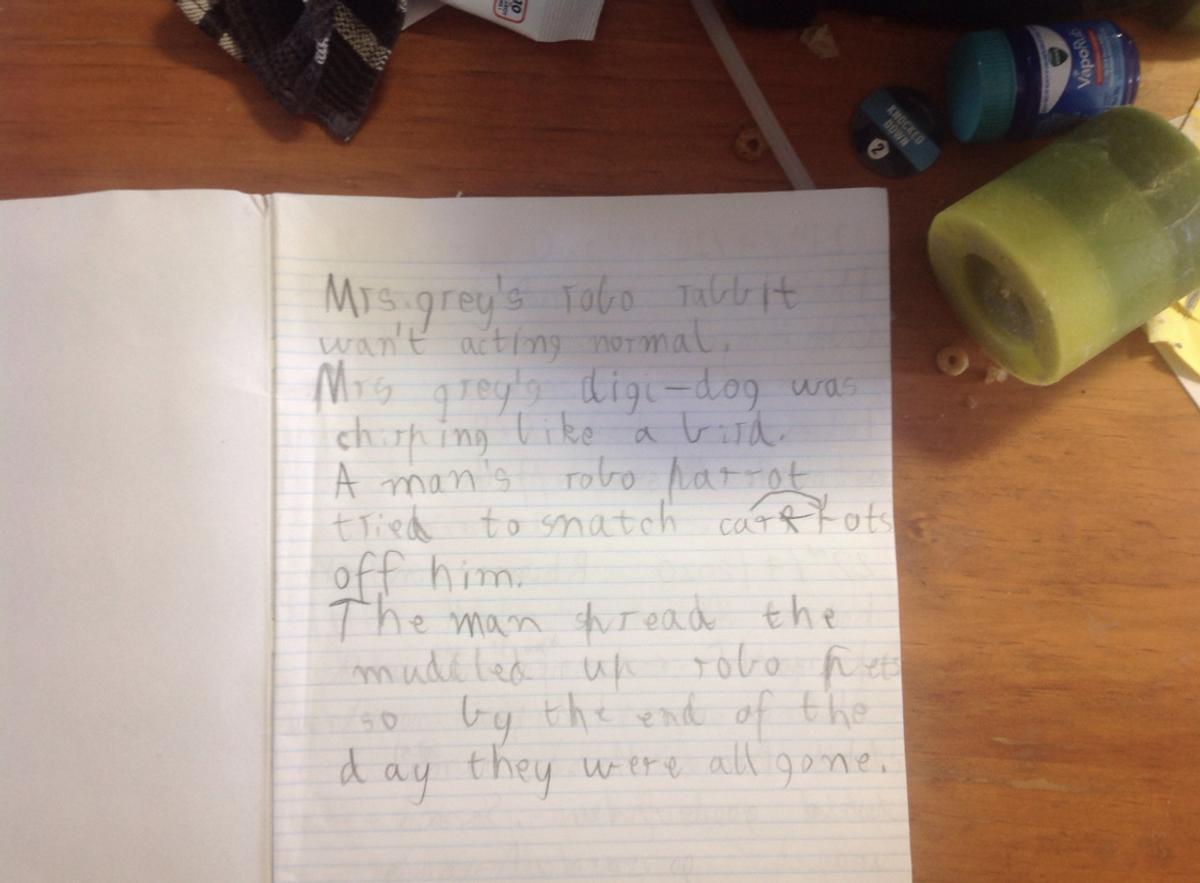 10
KNOCKED
DOWN
2
VapoRub
Mrs. grey's robo rabbit
wan't acting normal.
Mrs grey's digi-dog was
chirping like a bird.
A man's robo parrot
tried to snatch carrots
off him.
The man spread the
muddled up robo pets
so by the end of the
day they were all gone.